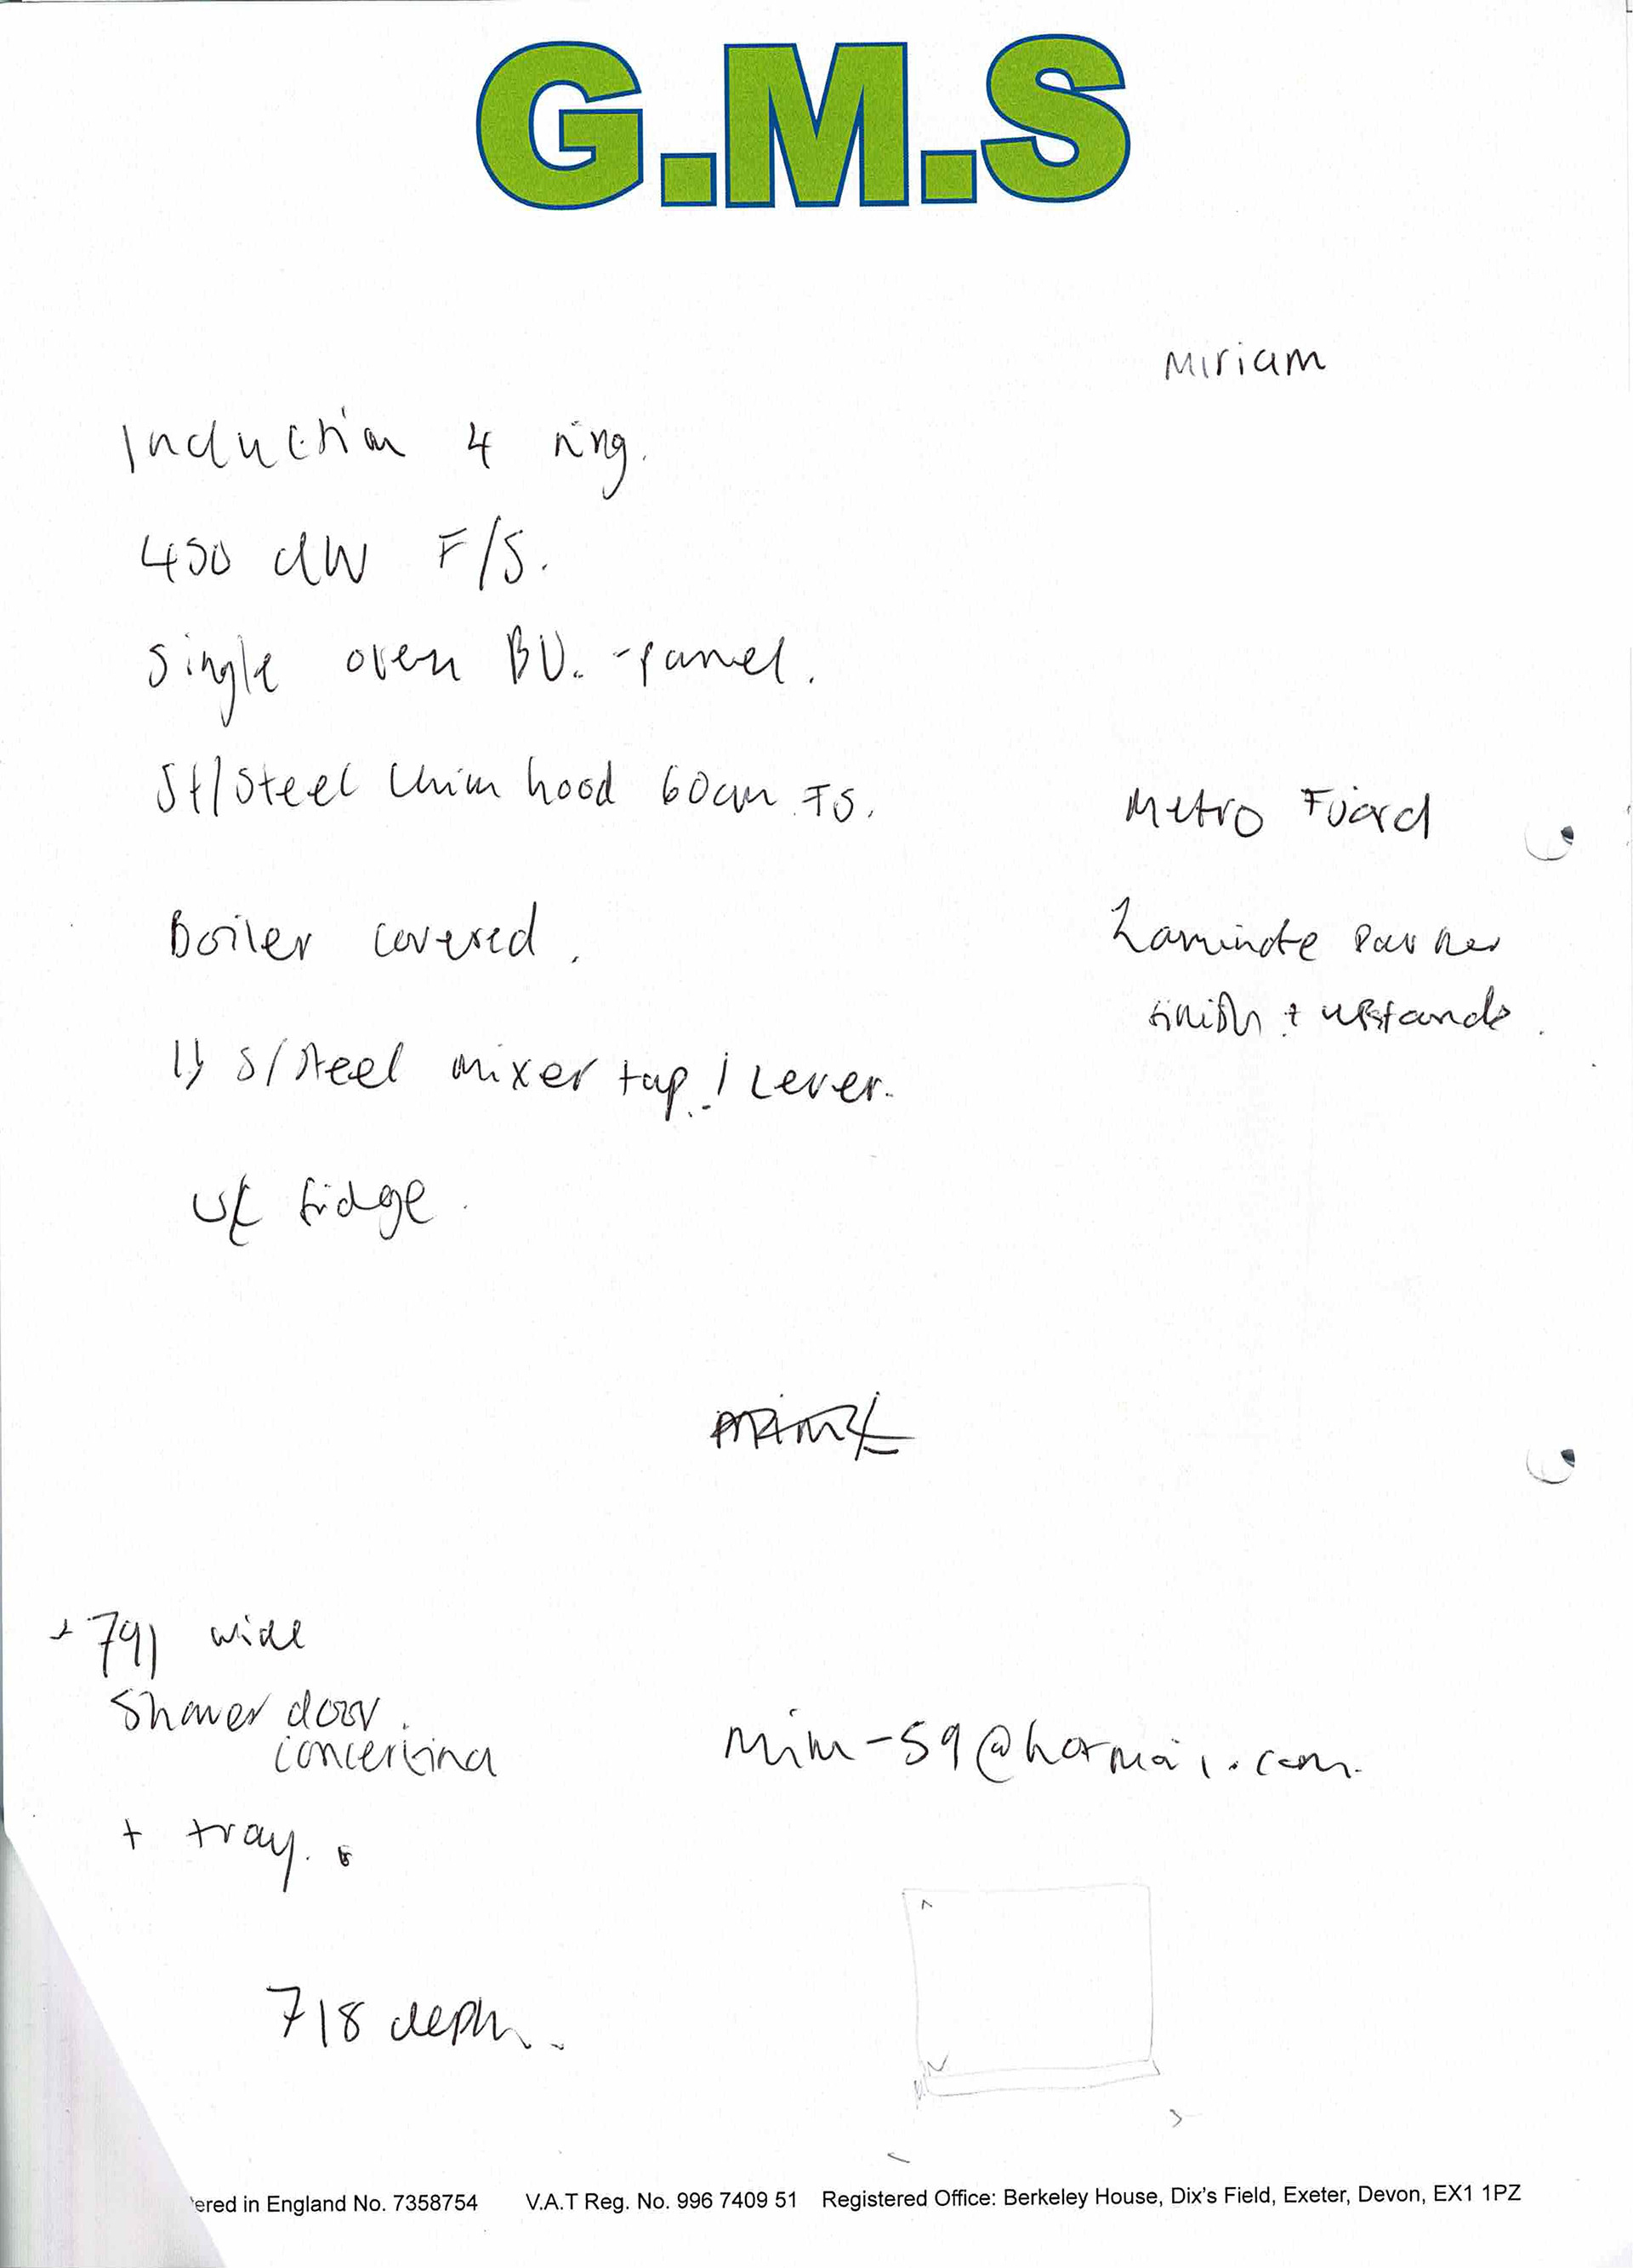 G.M.S
Miriam
Induction 4 ring.
450 dW F/S.
Single oven BU. - panel.
St/Steel Chim hood 60cm FS.
Metro Fjord
Boiler covered.
Laminate
finish + upstands.
1½ S/Steel mixer tap. 1 Lever.
UC fridge.
791 wide
Shower door.
concertina
mim-59@hotmail.com.
+ tray.
718 depth.
ered in England No. 7358754 V.A.T Reg. No. 996 7409 51 Registered Office: Berkeley House, Dix's Field, Exeter, Devon, EX1 1PZ